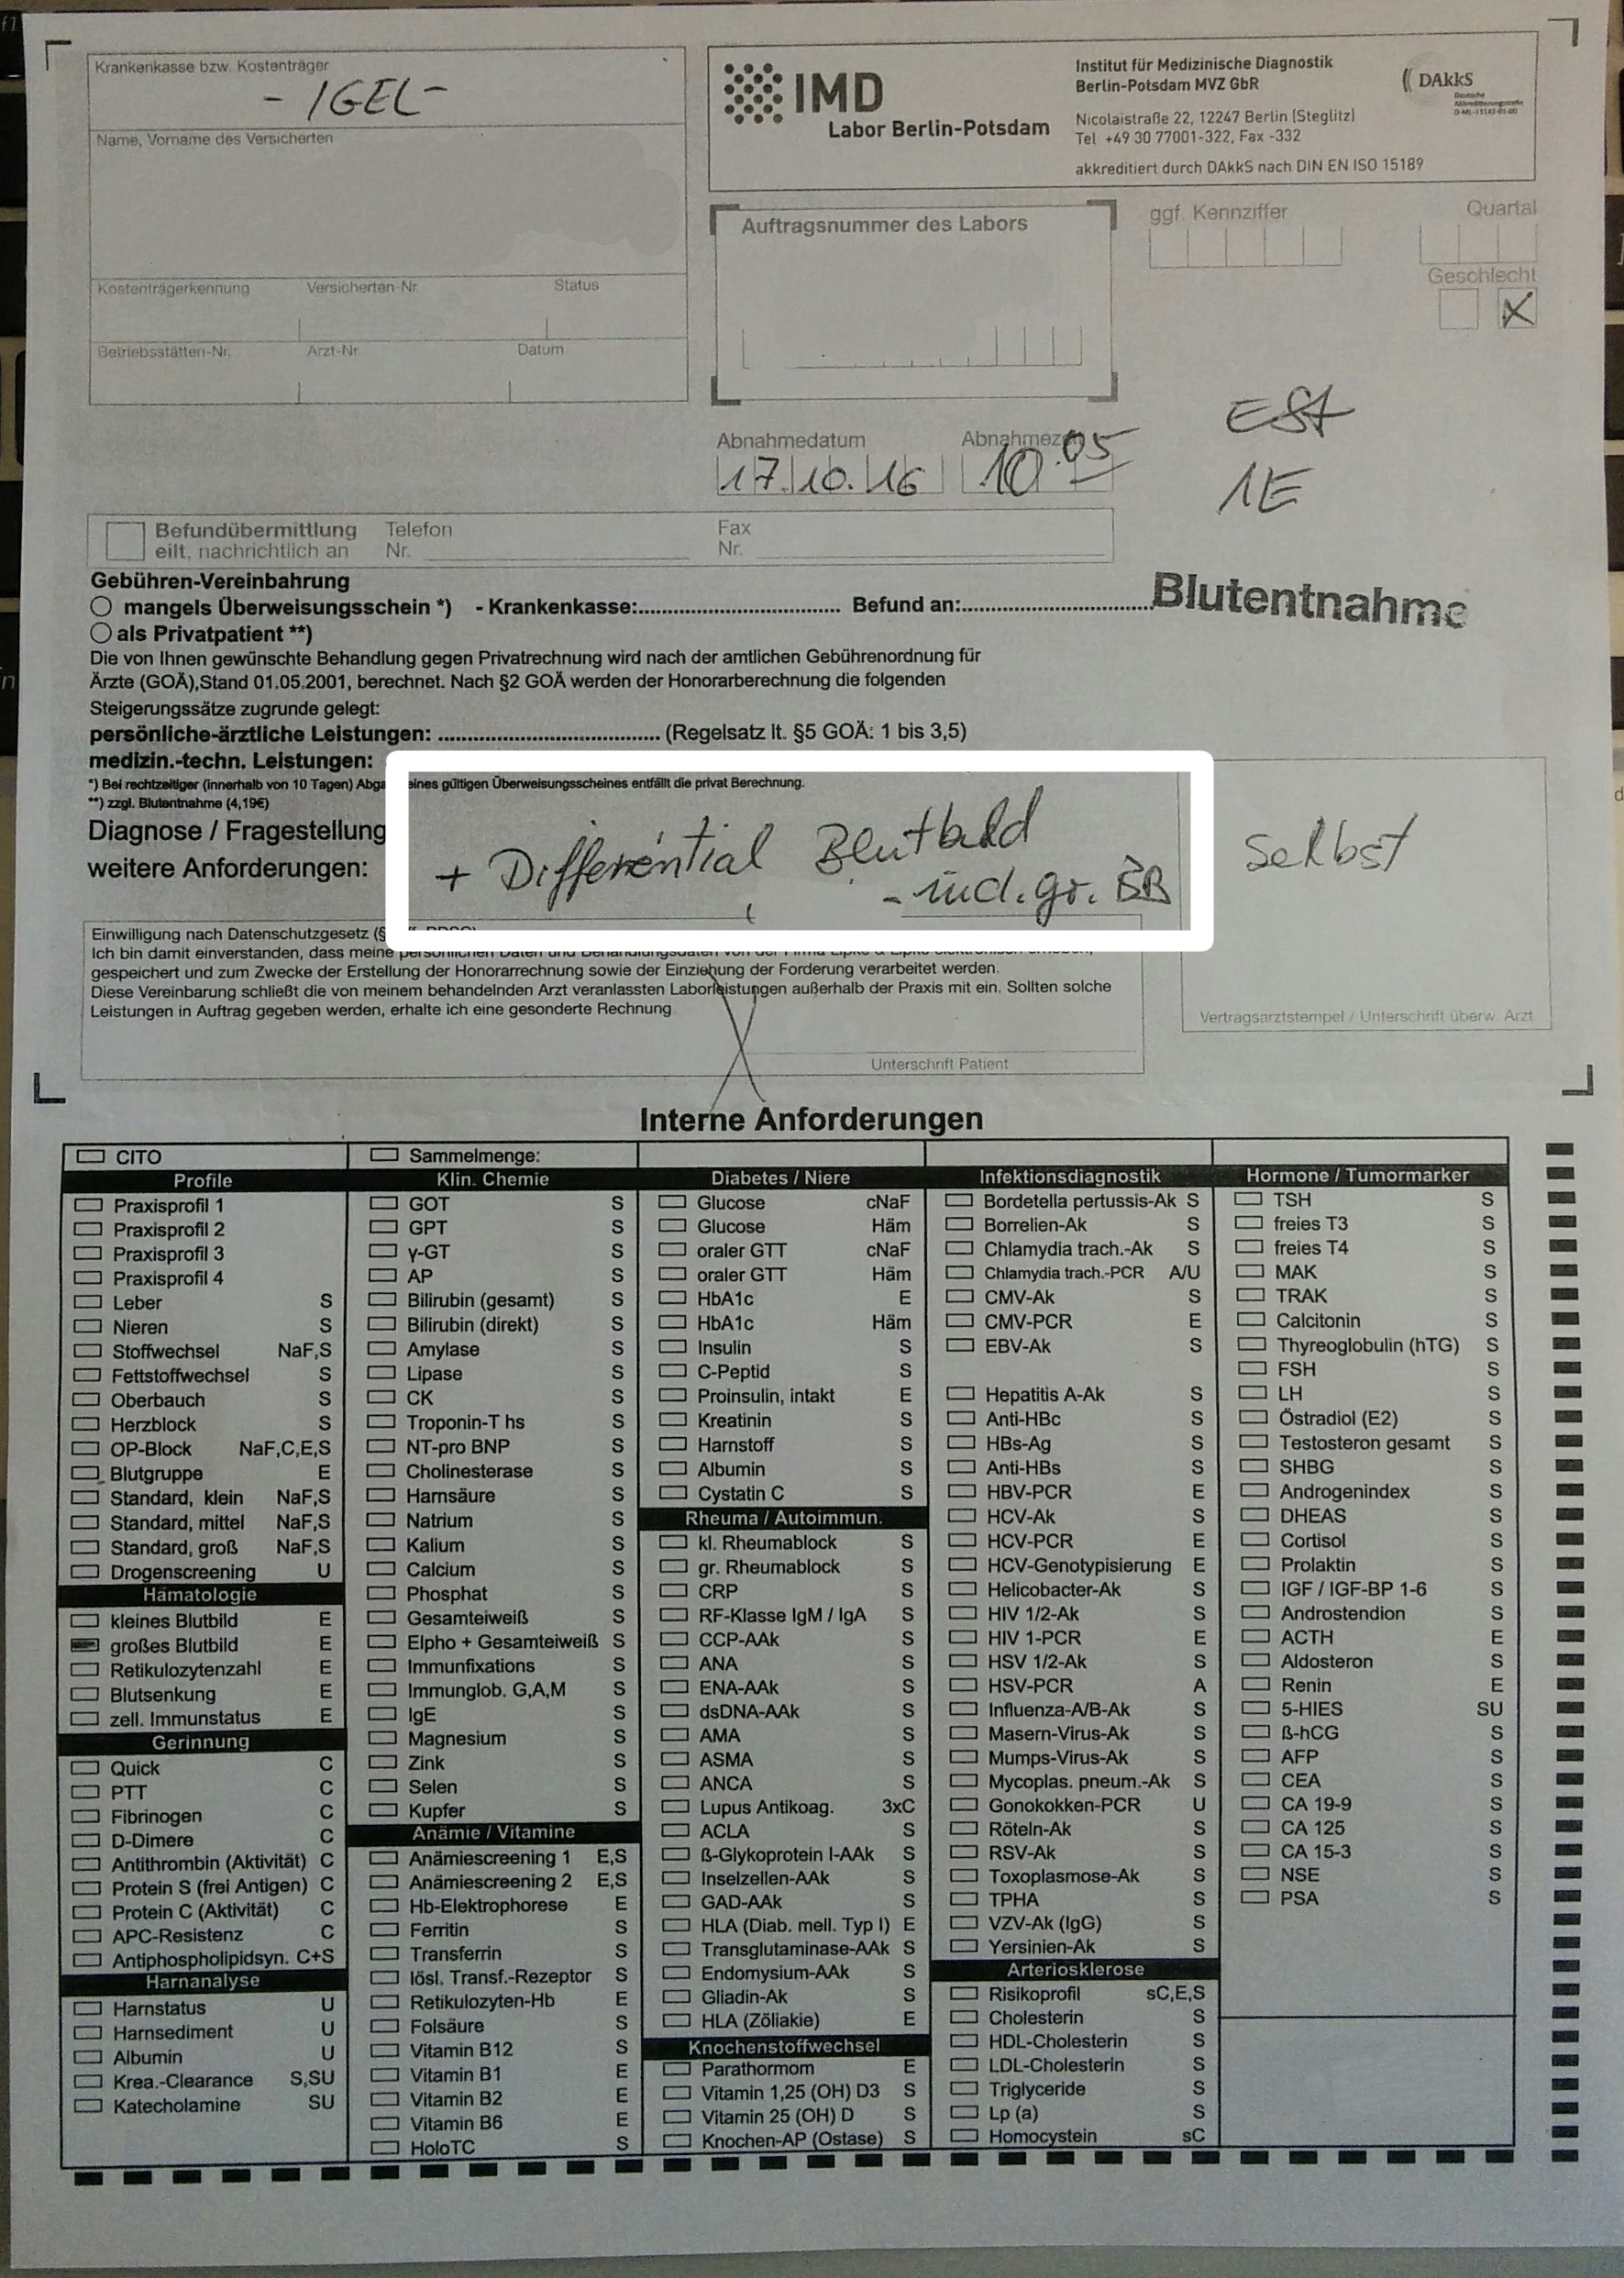 Krankenkasse bzw. Kostenträger
- IGEL -
Name, Vorname des Versicherten
Kostenträgerkennung Versicherten-Nr. Status
Betriebsstätten-Nr. Arzt-Nr. Datum
IMD
Labor Berlin-Potsdam
Institut für Medizinische Diagnostik
Berlin-Potsdam MVZ GbR
Nicolaistraße 22, 12247 Berlin (Steglitz)
Tel +49 30 77001-322, Fax -332
akkreditiert durch DAkkS nach DIN EN ISO 15189
DAkkS
Deutsche
Akkreditierungsstelle
Auftragsnummer des Labors
ggf. Kennziffer Quartal
Geschlecht
X
Abnahmedatum
17.10.16 10.05
ESt
1E
Befundübermittlung Telefon Fax
eilt, nachrichtlich an Nr. Nr.
Gebühren-Vereinbahrung
mangels Überweisungsschein *) - Krankenkasse: Befund an:
Blutentnahme
als Privatpatient **)
Die von Ihnen gewünschte Behandlung gegen Privatrechnung wird nach der amtlichen Gebührenordnung für
Ärzte (GOÄ),Stand 01.05.2001, berechnet. Nach §2 GOÄ werden der Honorarberechnung die folgenden
Steigerungssätze zugrunde gelegt:
persönliche-ärztliche Leistungen: (Regelsatz lt. §5 GOÄ: 1 bis 3,5)
medizin.-techn. Leistungen:
*) Bei rechtzeitiger (innerhalb von 10 Tagen) Abga eines gültigen Überweisungsscheines entfällt die privat Berechnung.
**) zzgl. Blutentnahme (4,19€)
Diagnose / Fragestellung
weitere Anforderungen:
+ Differential Blutbild
- ind. gr. BB
Selbst
Einwilligung nach Datenschutzgesetz (§
Ich bin damit einverstanden, dass meine persönlichen Daten und Behandlungsdaten von der Firma
gespeichert und zum Zwecke der Erstellung der Honorarrechnung sowie der Einziehung der Forderung verarbeitet werden.
Diese Vereinbarung schließt die von meinem behandelnden Arzt veranlassten Laborleistungen außerhalb der Praxis mit ein. Sollten solche
Leistungen in Auftrag gegeben werden, erhalte ich eine gesonderte Rechnung
Unterschrift Patient
Vertragsarztstempel / Unterschrift überw. Arzt
Interne Anforderungen
CITO
Profile
Praxisprofil 1
Praxisprofil 2
Praxisprofil 3
Praxisprofil 4
Leber S
Nieren S
Stoffwechsel NaF,S
Fettstoffwechsel S
Oberbauch S
Herzblock S
OP-Block NaF,C,E,S
Blutgruppe E
Standard, klein NaF,S
Standard, mittel NaF,S
Standard, groß NaF,S
Drogenscreening U
Hämatologie
kleines Blutbild E
großes Blutbild E
Retikulozytenzahl E
Blutsenkung E
zell. Immunstatus E
Gerinnung
Quick C
PTT C
Fibrinogen C
D-Dimere C
Antithrombin (Aktivität) C
Protein S (frei Antigen) C
Protein C (Aktivität) C
APC-Resistenz C
Antiphospholipidsyn. C+S
Harnanalyse
Harnstatus U
Harnsediment U
Albumin U
Krea.-Clearance S,SU
Katecholamine SU
Sammelmenge:
Klin. Chemie
GOT S
GPT S
γ-GT S
AP S
Bilirubin (gesamt) S
Bilirubin (direkt) S
Amylase S
Lipase S
CK S
Troponin-T hs S
NT-pro BNP S
Cholinesterase S
Harnsäure S
Natrium S
Kalium S
Calcium S
Phosphat S
Gesamteiweiß S
Elpho + Gesamteiweiß S
Immunfixations S
Immunglob. G,A,M S
IgE S
Magnesium S
Zink S
Selen S
Kupfer S
Anämie / Vitamine
Anämiescreening 1 E,S
Anämiescreening 2 E,S
Hb-Elektrophorese E
Ferritin S
Transferrin S
lösl. Transf.-Rezeptor S
Retikulozyten-Hb E
Folsäure S
Vitamin B12 S
Vitamin B1 E
Vitamin B2 E
Vitamin B6 E
HoloTC S
Diabetes / Niere
Glucose cNaF
Glucose Häm
oraler GTT cNaF
oraler GTT Häm
HbA1c E
HbA1c Häm
Insulin S
C-Peptid S
Proinsulin, intakt E
Kreatinin S
Harnstoff S
Albumin S
Cystatin C S
Rheuma / Autoimmun.
kl. Rheumablock S
gr. Rheumablock S
CRP S
RF-Klasse IgM / IgA S
CCP-AAk S
ANA S
ENA-AAk S
dsDNA-AAk S
AMA S
ASMA S
ANCA S
Lupus Antikoag. 3xC
ACLA S
ß-Glykoprotein I-AAk S
Inselzellen-AAk S
GAD-AAk S
HLA (Diab. mell. Typ I) E
Transglutaminase-AAk S
Endomysium-AAk S
Gliadin-Ak S
HLA (Zöliakie) E
Knochenstoffwechsel
Parathormom E
Vitamin 1,25 (OH) D3 S
Vitamin 25 (OH) D S
Knochen-AP (Ostase) S
Infektionsdiagnostik
Bordetella pertussis-Ak S
Borrelien-Ak S
Chlamydia trach.-Ak S
Chlamydia trach.-PCR A/U
CMV-Ak S
CMV-PCR E
EBV-Ak S
Hepatitis A-Ak S
Anti-HBc S
HBs-Ag S
Anti-HBs S
HBV-PCR E
HCV-Ak S
HCV-PCR E
HCV-Genotypisierung E
Helicobacter-Ak S
HIV 1/2-Ak S
HIV 1-PCR E
HSV 1/2-Ak S
HSV-PCR A
Influenza-A/B-Ak S
Masern-Virus-Ak S
Mumps-Virus-Ak S
Mycoplas. pneum.-Ak S
Gonokokken-PCR U
Röteln-Ak S
RSV-Ak S
Toxoplasmose-Ak S
TPHA S
VZV-Ak (IgG) S
Yersinien-Ak S
Arteriosklerose
Risikoprofil sC,E,S
Cholesterin S
HDL-Cholesterin S
LDL-Cholesterin S
Triglyceride S
Lp (a) S
Homocystein sC
Hormone / Tumormarker
TSH S
freies T3 S
freies T4 S
MAK S
TRAK S
Calcitonin S
Thyreoglobulin (hTG) S
FSH S
LH S
Östradiol (E2) S
Testosteron gesamt S
SHBG S
Androgenindex S
DHEAS S
Cortisol S
Prolaktin S
IGF / IGF-BP 1-6 S
Androstendion S
ACTH E
Aldosteron S
Renin E
5-HIES SU
ß-hCG S
AFP S
CEA S
CA 19-9 S
CA 125 S
CA 15-3 S
NSE S
PSA S